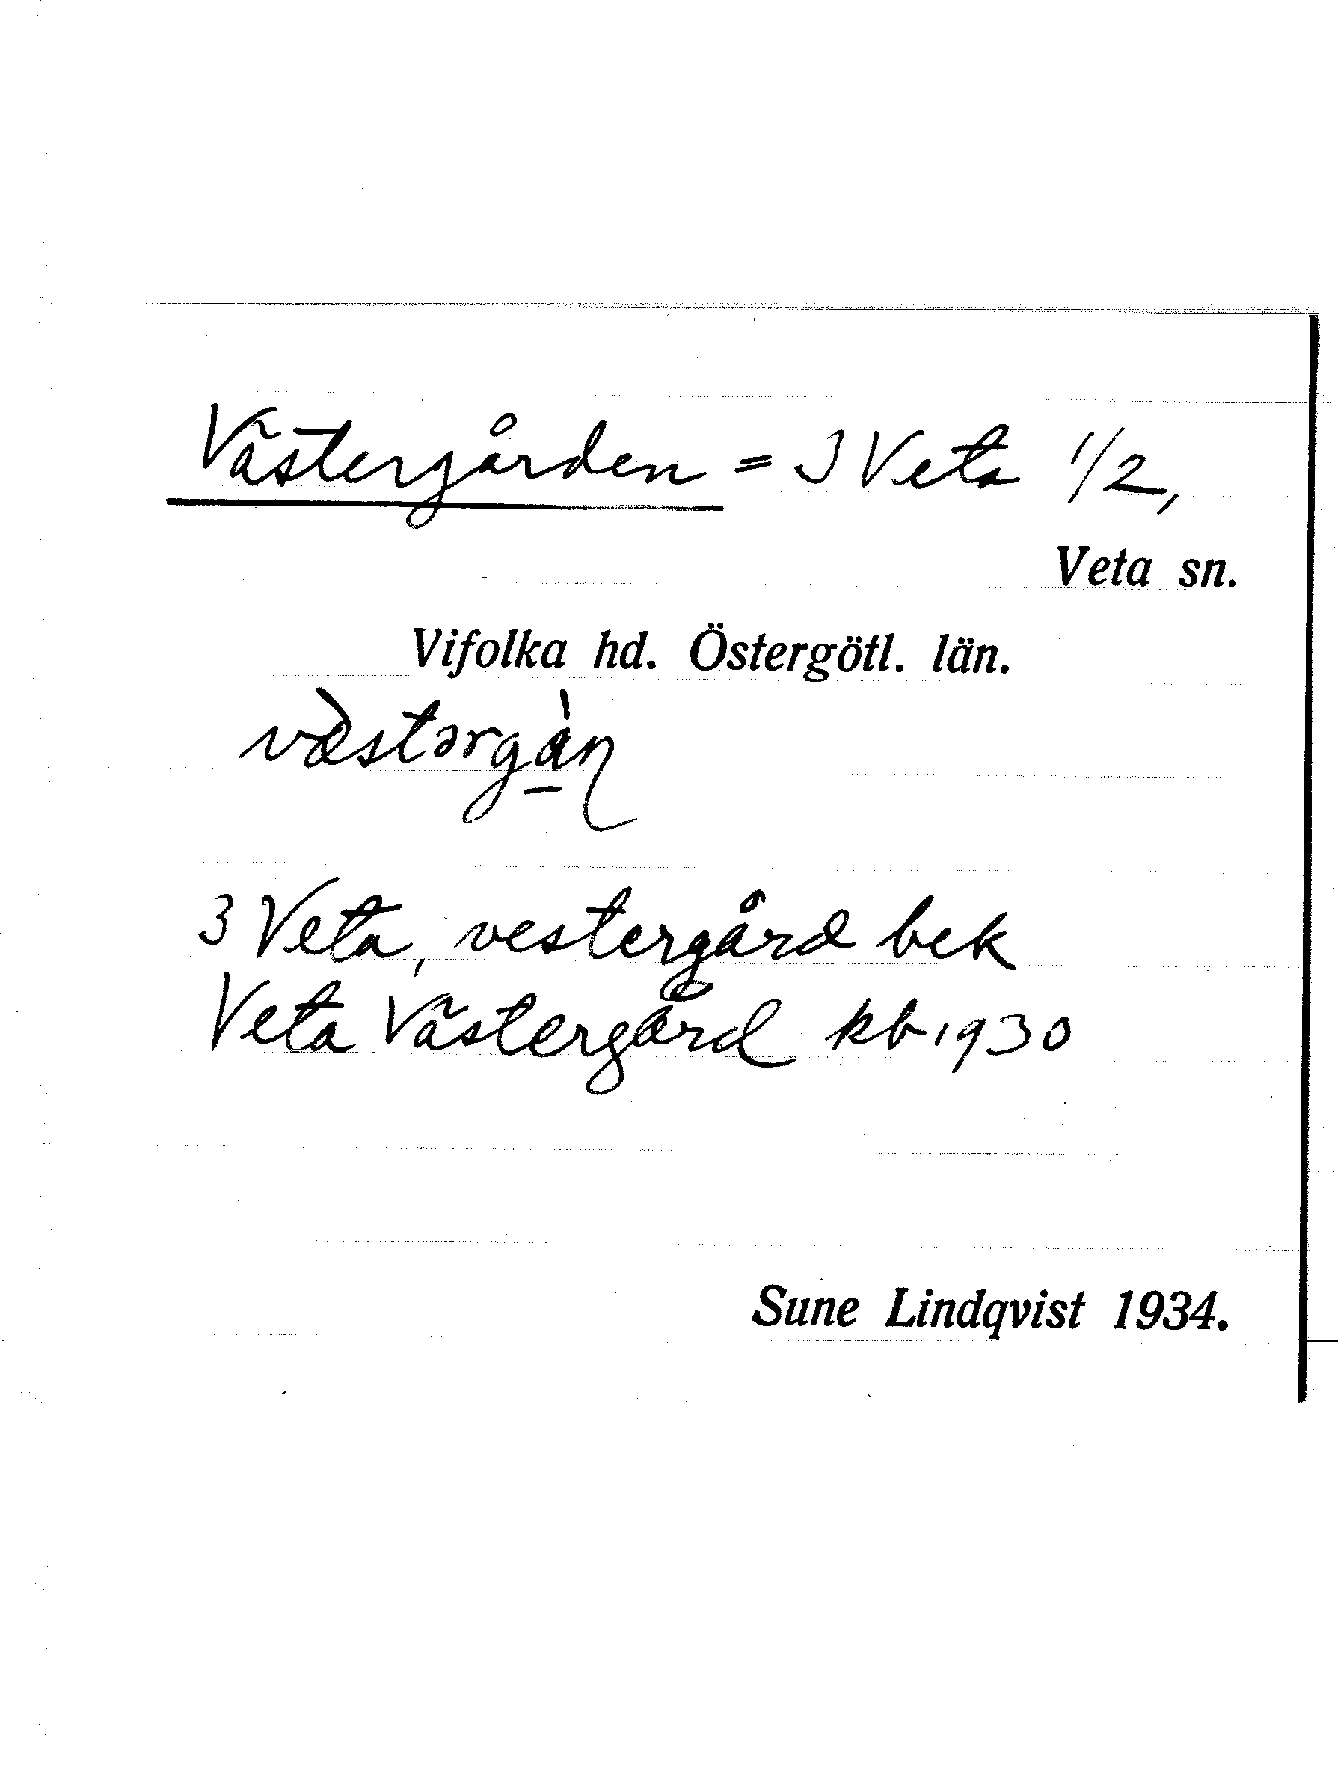 Västergården = 3 Veta 1/2,
Veta sn.
Vifolka hd. Östergötl. län.
væ̀stərgàꞥ
3 Veta, vestergård bek
Veta Västergård kb 1930
Sune Lindqvist 1934.